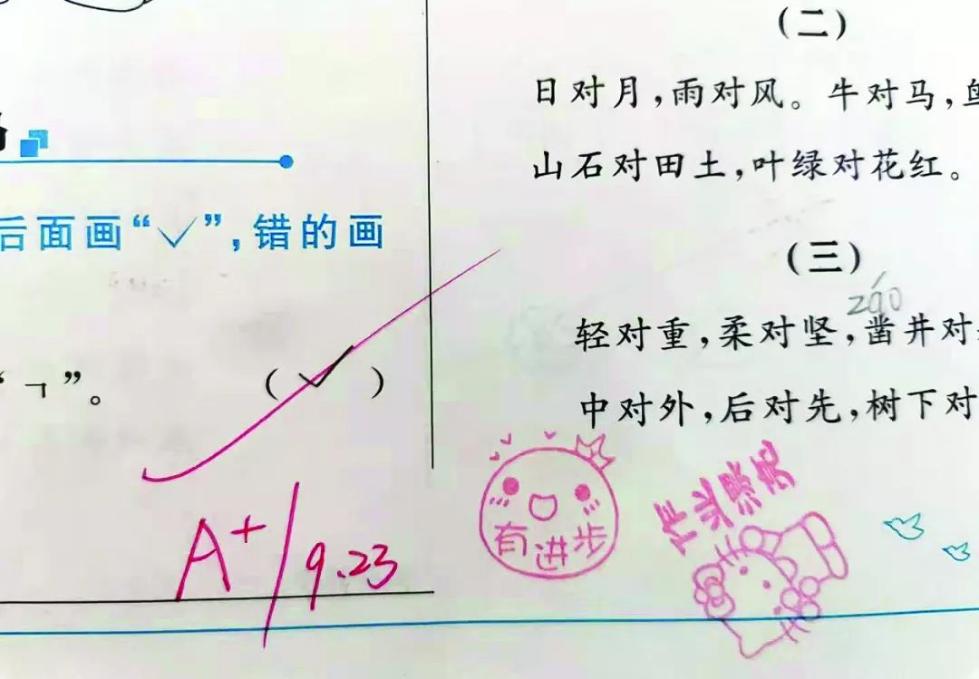 后面画“✓”,错的画
“㇕”。 (✓)
A+/9.23
(二)
日对月,雨对风。牛对马,鸟
山石对田土,叶绿对花红。
(三)
záo
轻对重,柔对坚,凿井对
中对外,后对先,树下对
有进步
作业漂亮